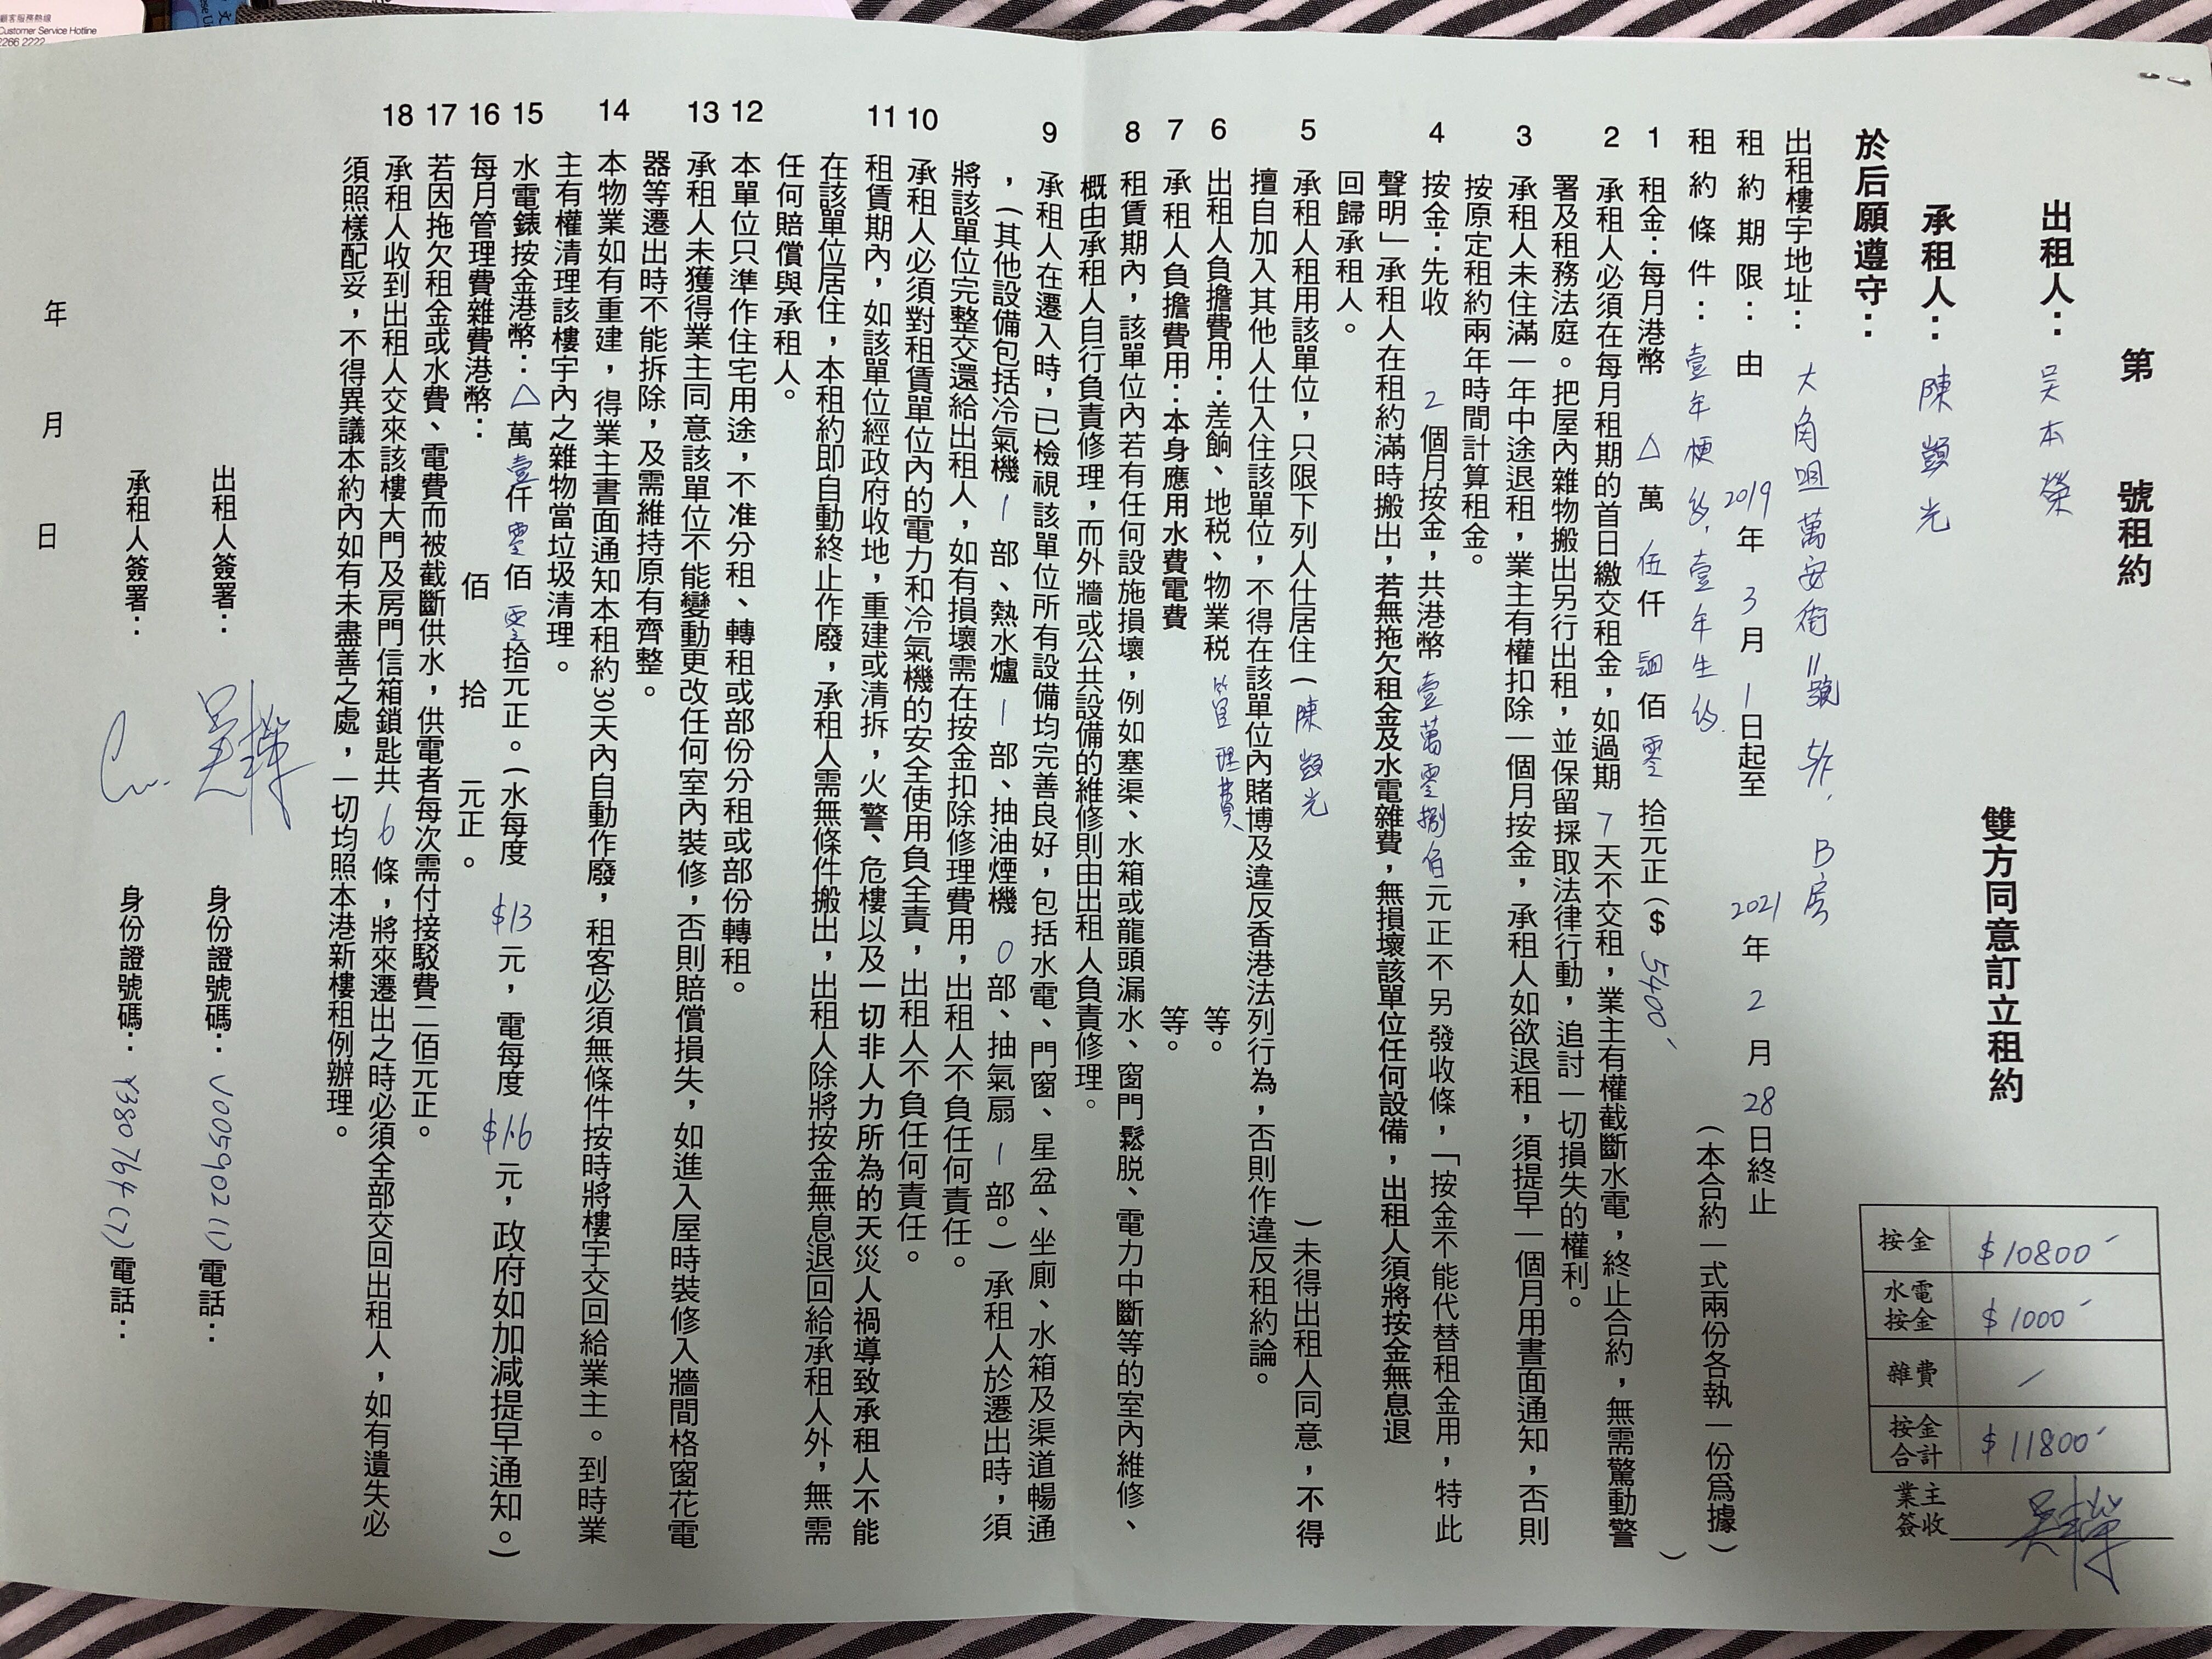 顧客服務熱線
Customer Service Hotline
2266 2222
第 號租約
出租人：吳本榮
承租人：陳顯光
雙方同意訂立租約
於后願遵守：
出租樓宇地址：大角咀萬安街11號 5/F, B房
租約期限：由 2019 年 3 月 1 日起至 2021 年 2 月 28 日終止
租約條件：壹年梗約，壹年生約. （本合約一式兩份各執一份爲據）
1 租金：每月港幣 △ 萬 伍 仟 肆 佰 零 拾元正（$ 5400 ）
2 承租人必須在每月租期的首日繳交租金，如過期 7 天不交租，業主有權截斷水電，終止合約，無需驚動警
署及租務法庭。把屋內雜物搬出另行出租，並保留採取法律行動，追討一切損失的權利。
3 承租人未住滿一年中途退租，業主有權扣除一個月按金，承租人如欲退租，須提早一個月用書面通知，否則
按原定租約兩年時間計算租金。
4 按金：先收 2 個月按金，共港幣 壹萬零捌佰 元正不另發收條，「按金不能代替租金用，特此
聲明」承租人在租約滿時搬出，若無拖欠租金及水電雜費，無損壞該單位任何設備，出租人須將按金無息退
回歸承租人。
5 承租人租用該單位，只限下列人仕居住（陳顯光 ）未得出租人同意，不得
擅自加入其他人仕入住該單位，不得在該單位內賭博及違反香港法列行為，否則作違反租約論。
6 出租人負擔費用：差餉、地税、物業税 管理費 等。
7 承租人負擔費用：本身應用水費電費 等。
8 租賃期內，該單位內若有任何設施損壞，例如塞渠、水箱或龍頭漏水、窗門鬆脱、電力中斷等的室內維修、
概由承租人自行負責修理，而外牆或公共設備的維修則由出租人負責修理。
9 承租人在遷入時，已檢視該單位所有設備均完善良好，包括水電、門窗、星盆、坐廁、水箱及渠道暢通
，（其他設備包括冷氣機 1 部、熱水爐 1 部、抽油煙機 0 部、抽氣扇 1 部。）承租人於遷出時，須
將該單位完整交還給出租人，如有損壞需在按金扣除修理費用，出租人不負任何責任。
10 承租人必須對租賃單位內的電力和冷氣機的安全使用負全責，出租人不負任何責任。
11 租賃期內，如該單位經政府收地，重建或清拆，火警、危樓以及一切非人力所為的天災人禍導致承租人不能
在該單位居住，本租約即自動終止作廢，承租人需無條件搬出，出租人除將按金無息退回給承租人外，無需
任何賠償與承租人。
12 本單位只準作住宅用途，不准分租、轉租或部份分租或部份轉租。
13 承租人未獲得業主同意該單位不能變動更改任何室內裝修，否則賠償損失，如進入屋時裝修入牆間格窗花電
器等遷出時不能拆除，及需維持原有齊整。
14 本物業如有重建，得業主書面通知本租約30天內自動作廢，租客必須無條件按時將樓宇交回給業主。到時業
主有權清理該樓宇內之雜物當垃圾清理。
15 水電錶按金港幣：△萬壹仟零佰零拾元正。（水每度 $13 元，電每度 $1.6 元，政府如加減提早通知。）
16 每月管理費雜費港幣： 佰 拾 元正。
17 若因拖欠租金或水費、電費而被截斷供水，供電者每次需付接駁費二佰元正。
18 承租人收到出租人交來該樓大門及房門信箱鎖匙共 6 條，將來遷出之時必須全部交回出租人，如有遺失必
須照樣配妥，不得異議本約內如有未盡善之處，一切均照本港新樓租例辦理。
出租人簽署： 身份證號碼：V005902(1) 電話：
承租人簽署： 身份證號碼：Y380764(7) 電話：
年 月 日
按金 $10800
水電按金 $1000
雜費 /
按金合計 $11800
業主簽收